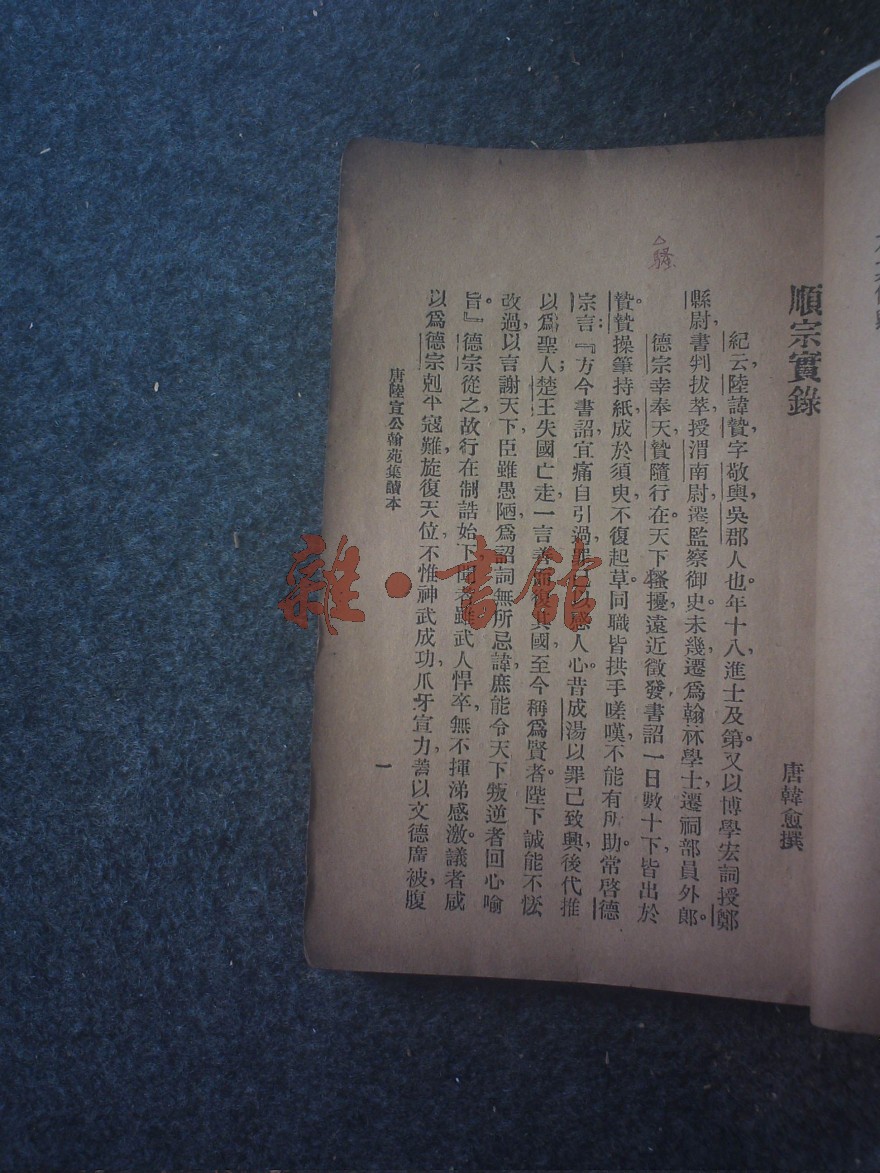 順宗實錄
唐韓愈撰
紀云，陸諱贄，字敬輿，吳郡人也。年十八進士及第。又以博學宏詞授鄭
縣尉，書判拔萃，授渭南尉，遷監察御史。未幾，遷爲翰林學士，遷祠部員外郎。
德宗幸奉天，贄隨行在。天下騷擾，遠近徵發，書詔一日數十下，皆出於
贄。贄操筆持紙，成於須臾，不復起草。同職皆拱手嗟嘆，不能有所助。常啓德
宗言：『方今書詔，宜痛自引過罪己，以感人心。昔成湯以罪己致興，後代推
以爲聖人；楚王失國亡走，一言善而復其國，至今稱爲賢者。陛下誠能不恡
改過，以言謝天下，臣雖愚陋，爲詔詞無所忌諱，庶能令天下叛逆者回心喻
旨。』德宗從之。故行在制誥始下，聞者雖武人悍卒，無不揮涕感激。議者咸
以爲德宗剋平寇難，旋復天位，不惟神武成功，爪牙宣力，蓋以文德廣被，腹
唐陸宣公翰苑集讀本
一
騷
雜·書館